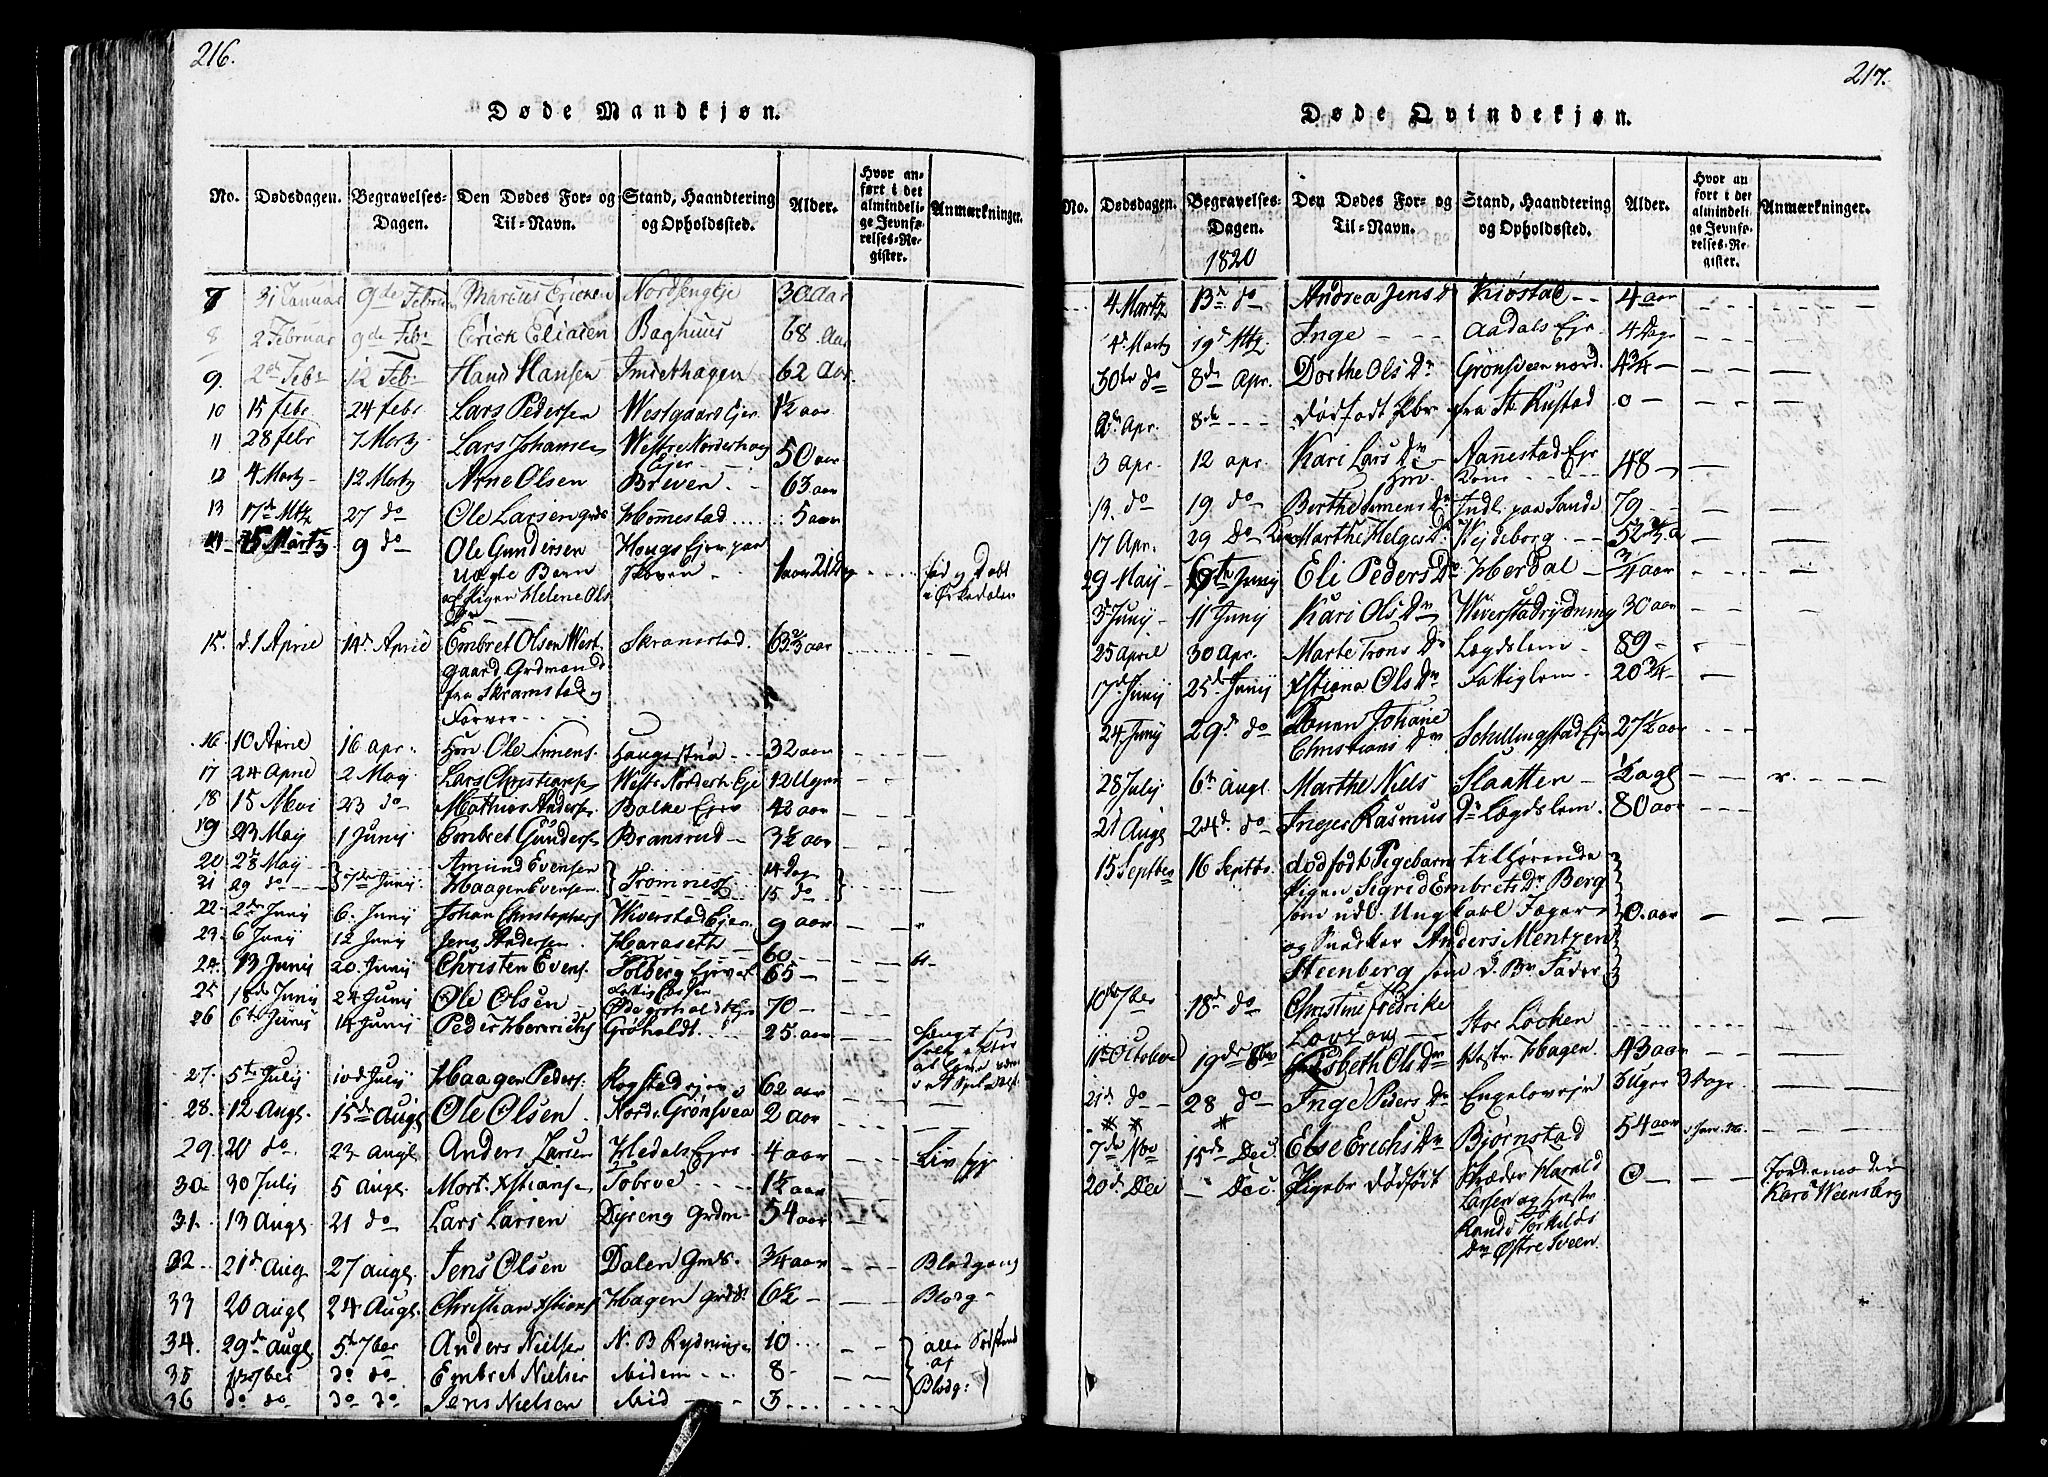 216.
Døde Mandkjøn.
No. Dødsdagen. Begravelses-Dagen. Den Dødes For- og Til-Navn. Stand, Haandtering og Opholdssted. Alder. Hvor anført i det almindelige Jevnførelses-Register. Anmærkninger.
31 Januar 9de Februar Marcus Ericksen 30 Aar
8 2 Februar 9de Febr Erick Eliasen Baghuus 68 Aar
9. 2de Febr 12 Febr Hans Hansen Imdethagen 62 Aar
10 15 febr 24 febr Lars Pedersen Westgaards Ejer 1½ aar
11 28 febr 7 Martz Lars Johansen Westre Norderhaug Ejer 50 aar
12 4 Martz 12 Martz Arne Olsen Breven 63 aar
13 17de Mtz 27 do Ole Larsen Grds Hommestad 5 aar
14 Martz 9 do Ole Gundersen Hougs Ejer paa
Uægte Barn Skoven 1 aar 21 Dag fød og Døbt
af Pigen Helene Ols
15. d. 1 April 14de April Embret Olsen West- Skramstad 63 2/3 aar
gaard Grdmand
fra Skramstad
Forver
16 10 April 16 apr. Ole Simens. Haugsstua 32 aar
17 24 April 2 May Lars Christiansen Westr Norderh Eje 12 Uger
18 15 Mai 23 do Mathias Anders. Balke Ejer 42 aar
19 23 May 1 Junij Embret Gunders. Bransrud 3½ aar
20 28 May Amund Evensen 14 Dage
21 29 do 7de Junij Haagen Evensen Tromnes 15 do
22. 2de Junij 6. Junij Johan Christophers Wiverstad Ejer 9 aar
23. 6 Junij 12 Junij Jens Andersen Haraseth 60
24. 13 Junij 20. Junij Christen Evens. Solberg Ejer 65
25 18de Junij 24 Junij Ole Olsen 70
26 6te Junij 14 Junij Peder Henrichs Grøholdt 25 aar
27. 5te Julij 10de Julij Haagen Peders. 62 aar
28. 12 Augs. 15de Augs Ole Olsen Nordr Grønsvea 2 aar
29. 20 do 23 augs. Anders Larsen Hedals Ejer 4 aar
30 30 Julij 5 Augs. Mort. Xstians. 1½ aar
31. 13 Augs 21 do Lars Larsen Dyseng Grdm 54 aar
32. 21de Aug 27 augs. Jens Olsen Dalen Grds. 3/4 aar Blodgang
33 20 augs 24 Augs. Christian Xstians Hagen Grds 6½ Blodg
34. 29de Augs 5de 7ber Anders Nielsen N. B Rydningen 10 alle Søskende
35 1 7ber do do Embret Nielsen ibidem 8 af
36 do do do do Jens Nielsen ibid 3 Blodg:
217.
Døde Qvindekjøn.
No. Dødsdagen. Begravelses-Dagen. Den Dødes For- og Til-Navn. Stand, Haandtering og Opholdssted. Alder. Hvor anført i det almindelige Jevnførelses-Register. Anmærkninger.
1820
4 Martz 13de do Andrea Jens D Kiøstad 4 aar
4de Martz 19de Mtz. Inge Aadals Ejr. 4 Dage
30te do 8de Apr. Dorthe Ols Dr Grønsveen nord. 4¾
2de Apr. 8de Dødfødt Pbr fra St. Rustad 0
3 apr. 12 apr. Kari Lars Dr Aanestad Ejr 48
Kone
13. do 19. do Berthe Simens Dr Indl. paa Sande 79
17 Apr. 29 do Marthe Helges Dr Wejdeborg 52 3/4 a
29 May 6te Junij Eli Peders Dr Herdal 3/4 aar
3de Junij 11 Junij Kari Ols Dr Wiverstadrydning 30 aar
25 april 30 Apr. Marte Trons Dr Lægdslem 89
17de Junij 25de Junij Xstiana Ols Dr Fattiglem 20 3/4
24 Junij 29de do Johane
Christians Dr Schillingstad Ejer 27½ aar
28 Julij 6te Augs. Marthe Niels Slaatten
21 Augs 24de do Inger Rasmus Dr Lægdslem 80 aar
15 Septbr 16 Septbr. dødfødt Pigebarn tilhørende
Pigen Sigrid Embrets Dr Berg
som udl. Ungkarl Jæger 0. aar
og Snedker Anders Mentzen
Steenberg som d. Br Fader
10de 7ber 18de do Christine Fredrike
Lovzau Stor Løcken
11te October 19de 8ber Lisbeth Ols Dr Hagen 43 aar
21de do 28 do Inge Peders Dr 3 Uger 3 Dage
7de Nov 15de Dec. Else Erichs Dr Bjørnstad 54 aar
20de Dec Dec. Pigebr dødfødt Skræder Harald 0
Larsen og
Torkilds
Dr Østre Sveen.